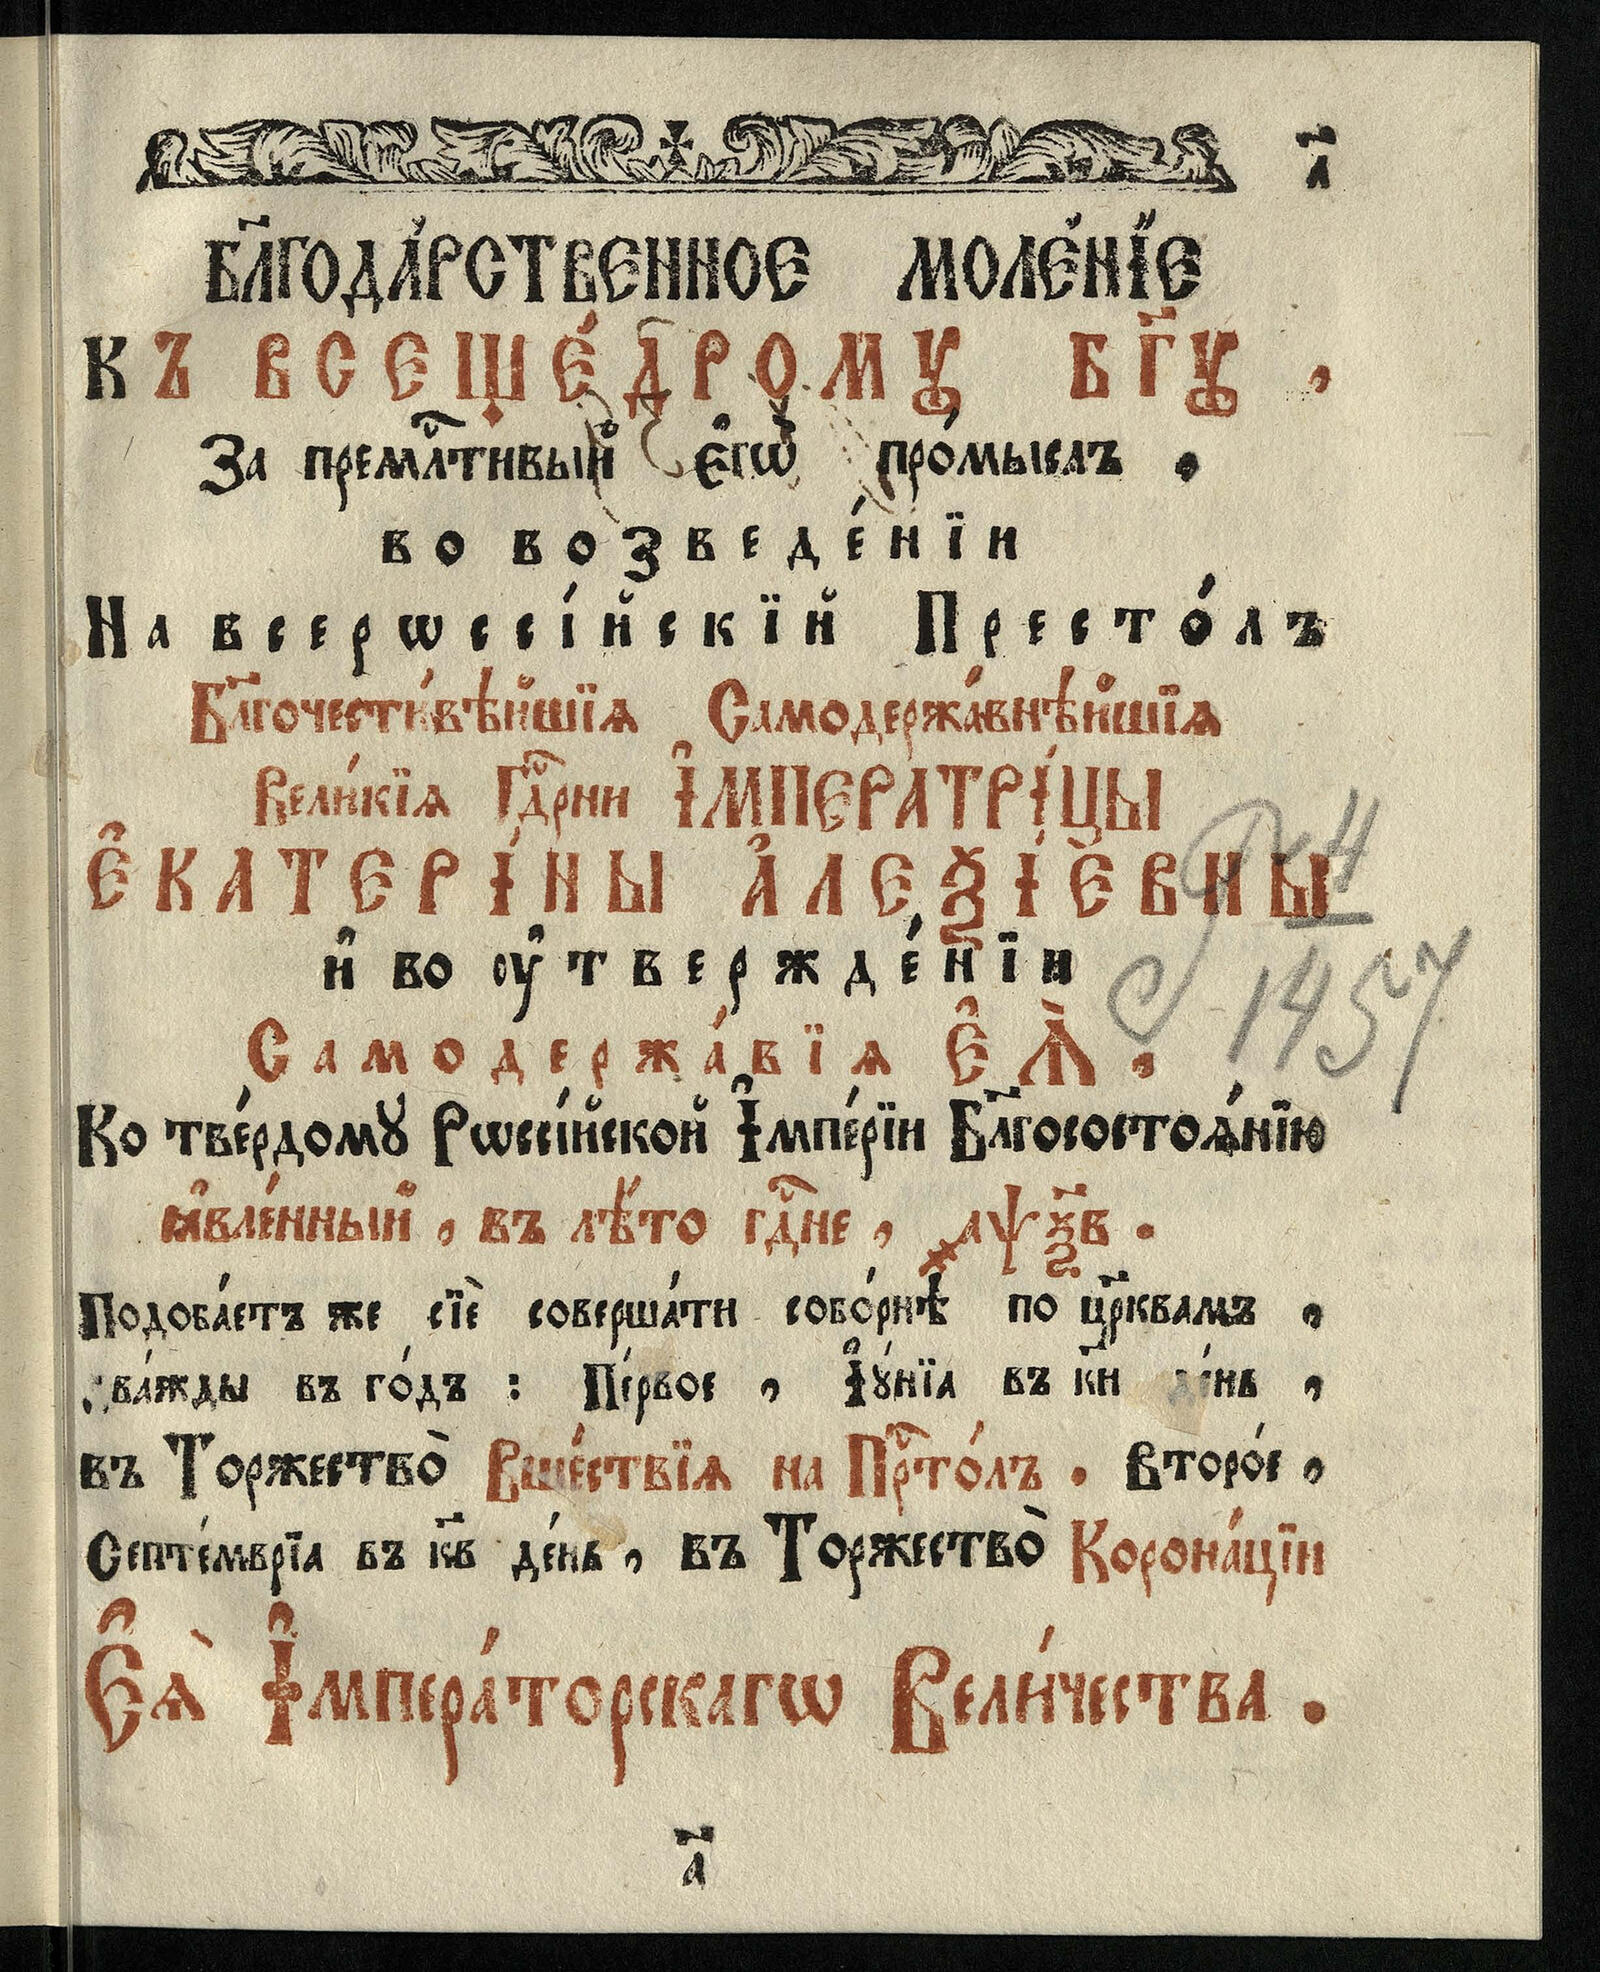 а҃
Бл҃года́рственное моле́нїе
къ всеще́дрому бг҃ꙋ,
За премлⷭ҇тивый є҆гѡ̀ про́мыслъ,
во возведе́нїи
На всерѡссі́йскїй Престо́лъ
Бл҃гочести́вѣйшїѧ Самодержа́внѣйшїѧ
Вели́кїѧ Гдⷭ҇рни І҆МПЕРАТРІ́ЦЫ
Є҆КАТЕРІ́НЫ А҆ЛЕѮІ́ЕВНЫ
и҆ во ᲂу҆твержде́нїи
Самодержа́вїѧ Є҆Ѧ̀,
Ко тве́рдомꙋ Рѡссі́йской І҆мпе́рїи Бл҃госостоѧ́нїю
ꙗ҆вле́нный, въ лѣ́то гдⷭ҇не, ҂аѱѯ҃в.
Подоба́етъ же сїѐ соверша́ти собо́рнѣ по цр҃квамъ,
два́жды въ го́дъ: Пе́рвое, І҆ꙋ́нїа въ к҃и де́нь,
въ Торжество̀ Вше́ствїѧ на Прⷭ҇то́лъ. Второ́е,
Септе́мврїа въ к҃в де́нь, въ Торжество̀ Корона́цїи
Є҆ѧ̀ І҆мпера́торскагѡ Вели́чества.
а҃
1457